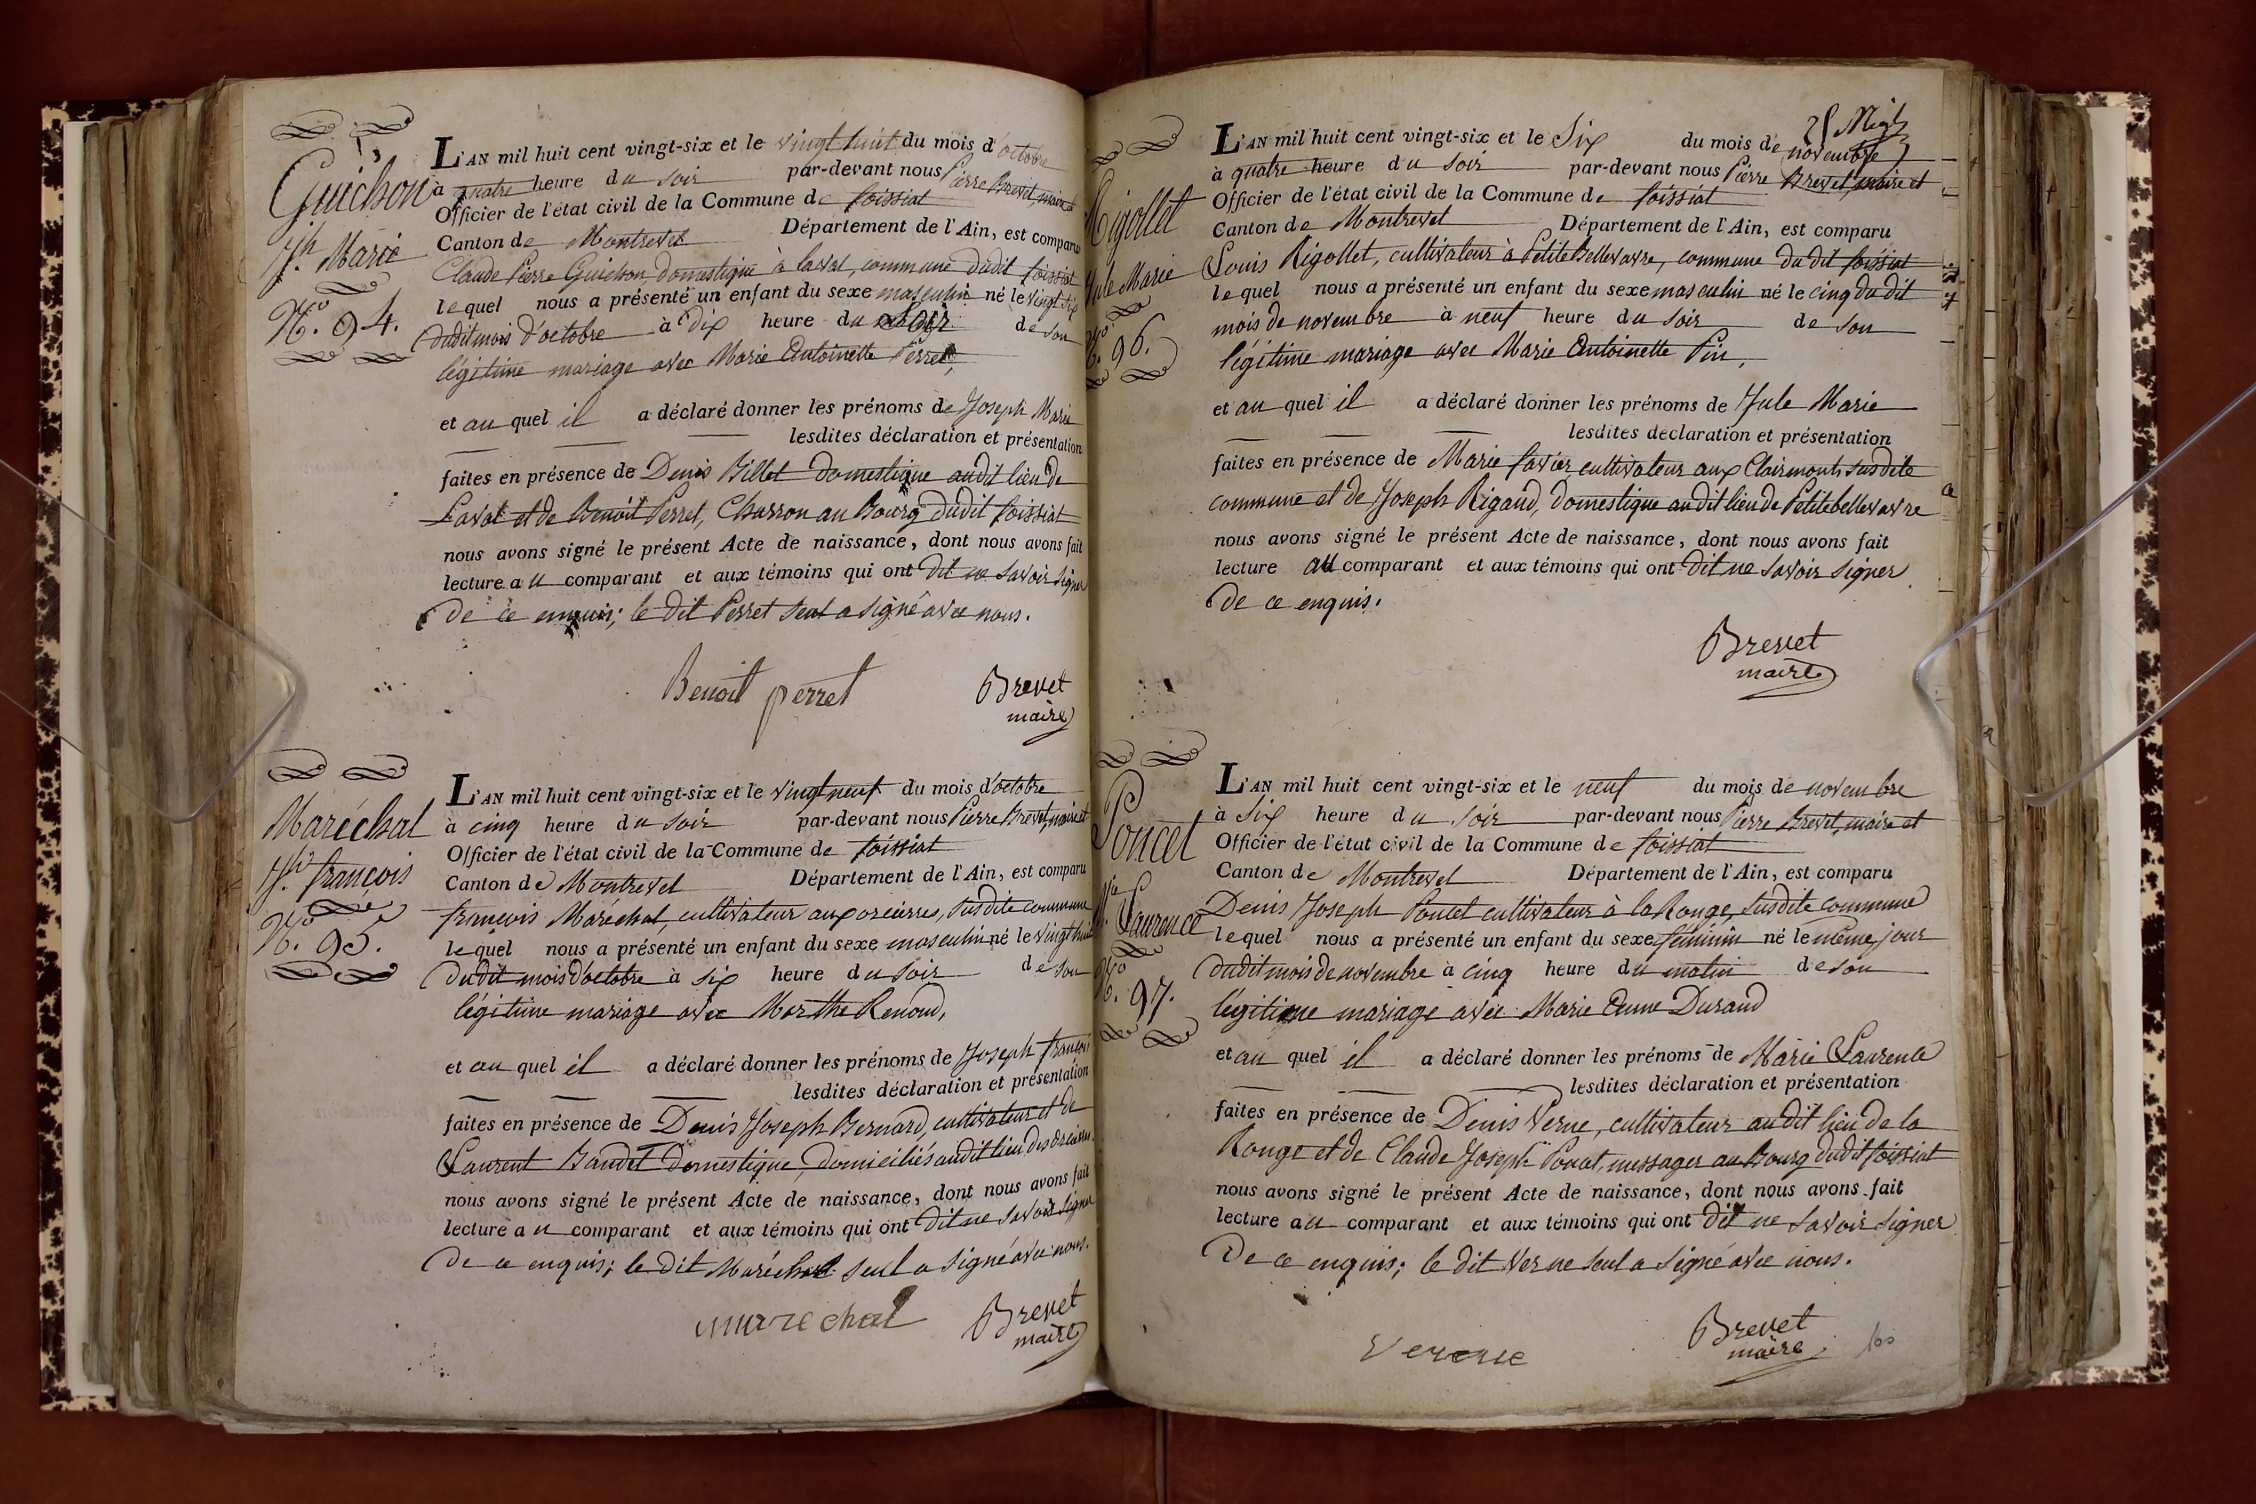 Guichon
Jh. Marie
N.º 94.
L'AN mil huit cent vingt-six et le vingt huit du mois d'octobre
à quatre heure du soir par-devant nous Pierre Brevet, maire et
Officier de l'état civil de la Commune de foissiat
Canton de Montrevel Département de l'Ain, est comparu
Claude Pierre Guichon, domestique à laval, commune dudit foissiat
lequel nous a présenté un enfant du sexe masculin né le vingt six
dudit mois d'octobre à dix heure du soir de son
légitime mariage avec Marie Antoinette Perret,
et au quel il a déclaré donner les prénoms de Joseph Marie
lesdites déclaration et présentation
faites en présence de Denis Billet domestique audit lieu de
Laval et de Benoit Perret, Charron au Bourg dudit foissiat
nous avons signé le présent Acte de naissance, dont nous avons fait
lecture au comparant et aux témoins qui ont dit ne savoir signer
de ce enquis; le dit Perret seul a signé avec nous.
Benoit perret
Brevet
maire
Maréchal
Jh. françois
N.º 95.
L'AN mil huit cent vingt-six et le vingt neuf du mois d'octobre
à cinq heure du soir par-devant nous Pierre Brevet, maire et
Officier de l'état civil de la Commune de foissiat
Canton de Montrevel Département de l'Ain, est comparu
françois Maréchal, cultivateur aux orcières, susdite commune
lequel nous a présenté un enfant du sexe masculin né le vingt huit
dudit mois d'octobre à six heure du soir de son
légitime mariage avec Marthe Renoud,
et au quel il a déclaré donner les prénoms de Joseph françois
lesdites déclaration et présentation
faites en présence de Denis Joseph Bernard, cultivateur et de
Laurent Baudet domestique, domiciliés audit lieu des orcières
nous avons signé le présent Acte de naissance, dont nous avons fait
lecture au comparant et aux témoins qui ont dit ne savoir signer
de ce enquis; le dit Maréchal seul a signé avec nous.
marechal
Brevet
maire
Rigollet
Jule Marie
N.º 96.
L'AN mil huit cent vingt-six et le Six du mois de novembre
à quatre heure du soir par-devant nous Pierre Brevet, maire et
Officier de l'état civil de la Commune de foissiat
Canton de Montrevel Département de l'Ain, est comparu
Louis Rigollet, cultivateur à Petite Bellevavre, commune du dit foissiat
lequel nous a présenté un enfant du sexe masculin né le cinq du dit
mois de novembre à neuf heure du soir de son
légitime mariage avec Marie Antoinette Pin,
et au quel il a déclaré donner les prénoms de Jule Marie
lesdites déclaration et présentation
faites en présence de Marie favier cultivateur aux Clairmonts susdite
commune et de Joseph Rigaud, domestique audit lieu de Petite bellevavre
nous avons signé le présent Acte de naissance, dont nous avons fait
lecture au comparant et aux témoins qui ont dit ne savoir signer
de ce enquis.
Brevet
maire
Poncet
Mie Laurence
N.º 97.
L'AN mil huit cent vingt-six et le neuf du mois de novembre
à Six heure du soir par-devant nous Pierre Brevet, maire et
Officier de l'état civil de la Commune de foissiat
Canton de Montrevel Département de l'Ain, est comparu
Denis Joseph Poncet cultivateur à la Ronge, susdite commune
lequel nous a présenté un enfant du sexe féminin né le même jour
dudit mois de novembre à cinq heure du matin de son
légitime mariage avec Marie Anne Durand
et au quel il a déclaré donner les prénoms de Marie Laurence
lesdites déclaration et présentation
faites en présence de Denis Verne, cultivateur audit lieu de la
Ronge et de Claude Joseph messager au Bourg dudit foissiat
nous avons signé le présent Acte de naissance, dont nous avons fait
lecture au comparant et aux témoins qui ont dit ne savoir signer
de ce enquis; le dit Verne seul a signé avec nous.
Verne
Brevet
maire